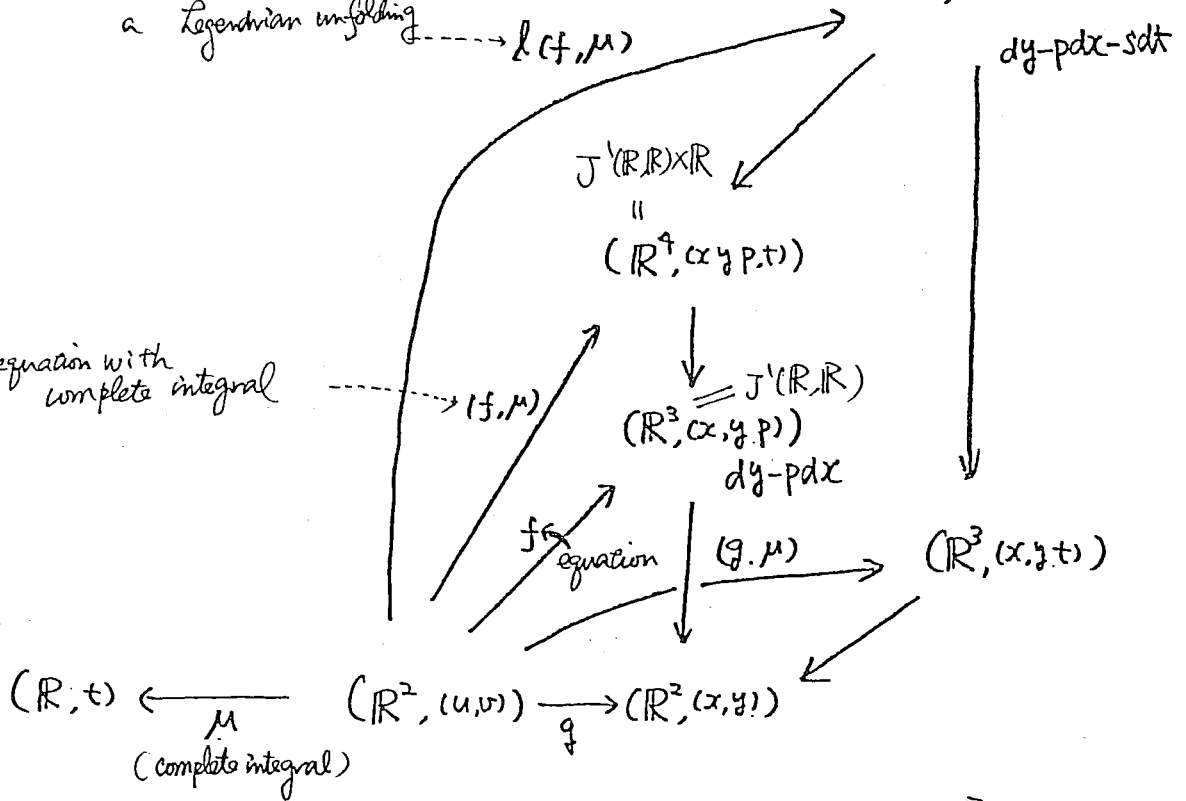 a Legendrian unfolding
l(f,μ)
dy-pdx-sdt
J¹(ℝ,ℝ)×ℝ
=
(ℝ⁴,(x y p,t))
equation with
complete integral
(f,μ)
J¹(ℝ,ℝ)
(ℝ³,(x,y.p))
dy-pdx
f
equation
(g.μ)
(ℝ³,(x,y.t))
(ℝ;t)
μ
(complete integral)
(ℝ²,(u,v))
g
(ℝ²,(x,y))